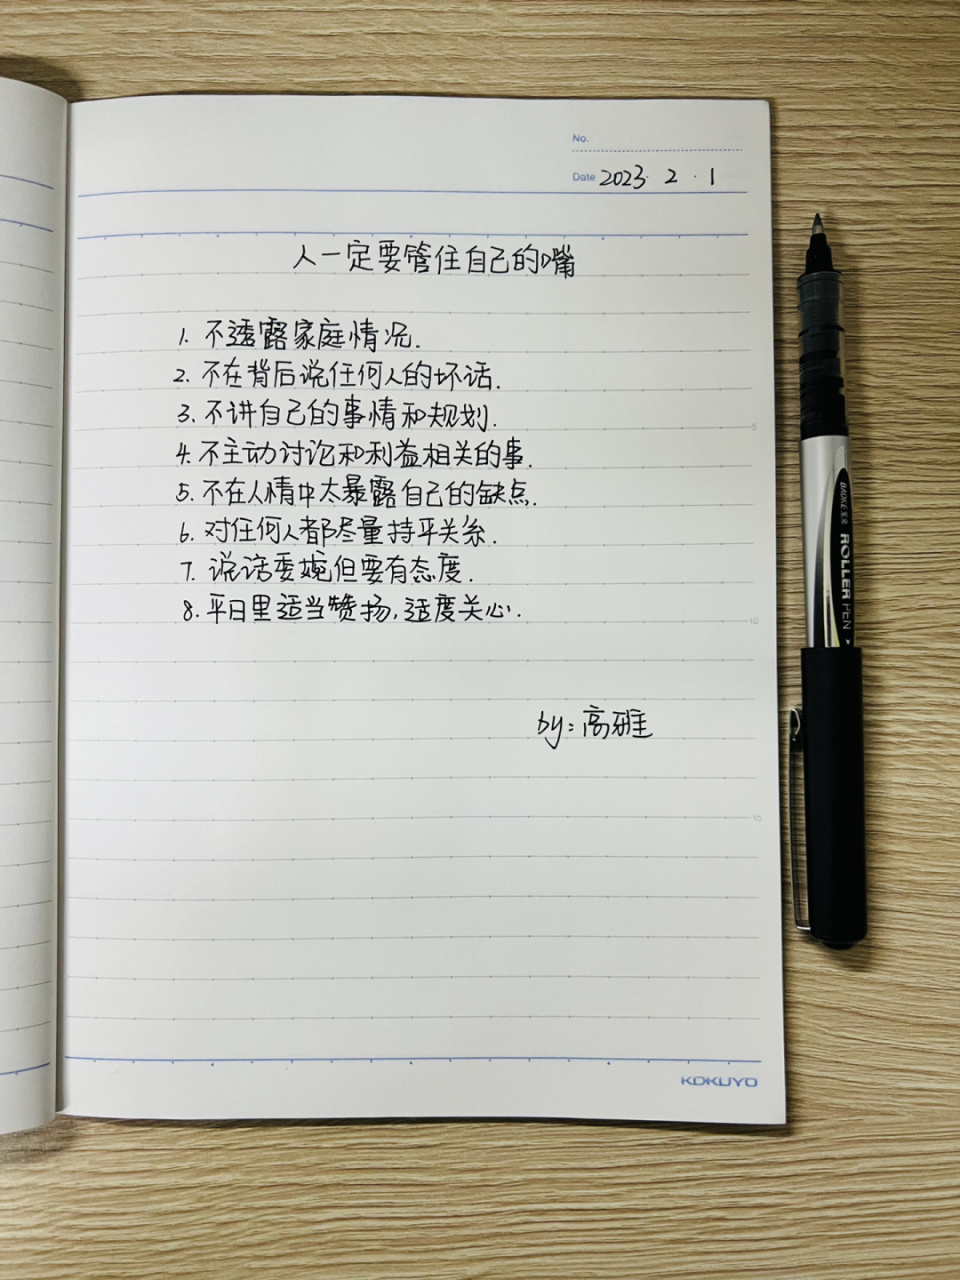 No.
Date 2023.2.1
人一定要管住自己的嘴
1. 不透露家庭情况.
2. 不在背后说任何人的坏话.
3. 不讲自己的事情和规划.
4. 不主动讨论和利益相关的事.
5. 不在人情中太暴露自己的缺点.
6. 对任何人都尽量持平关系.
7. 说话委婉但要有态度.
8. 平日里适当赞扬,适度关心.
by:高雅
5
10
15
KOKUYO
ROLLER PEN